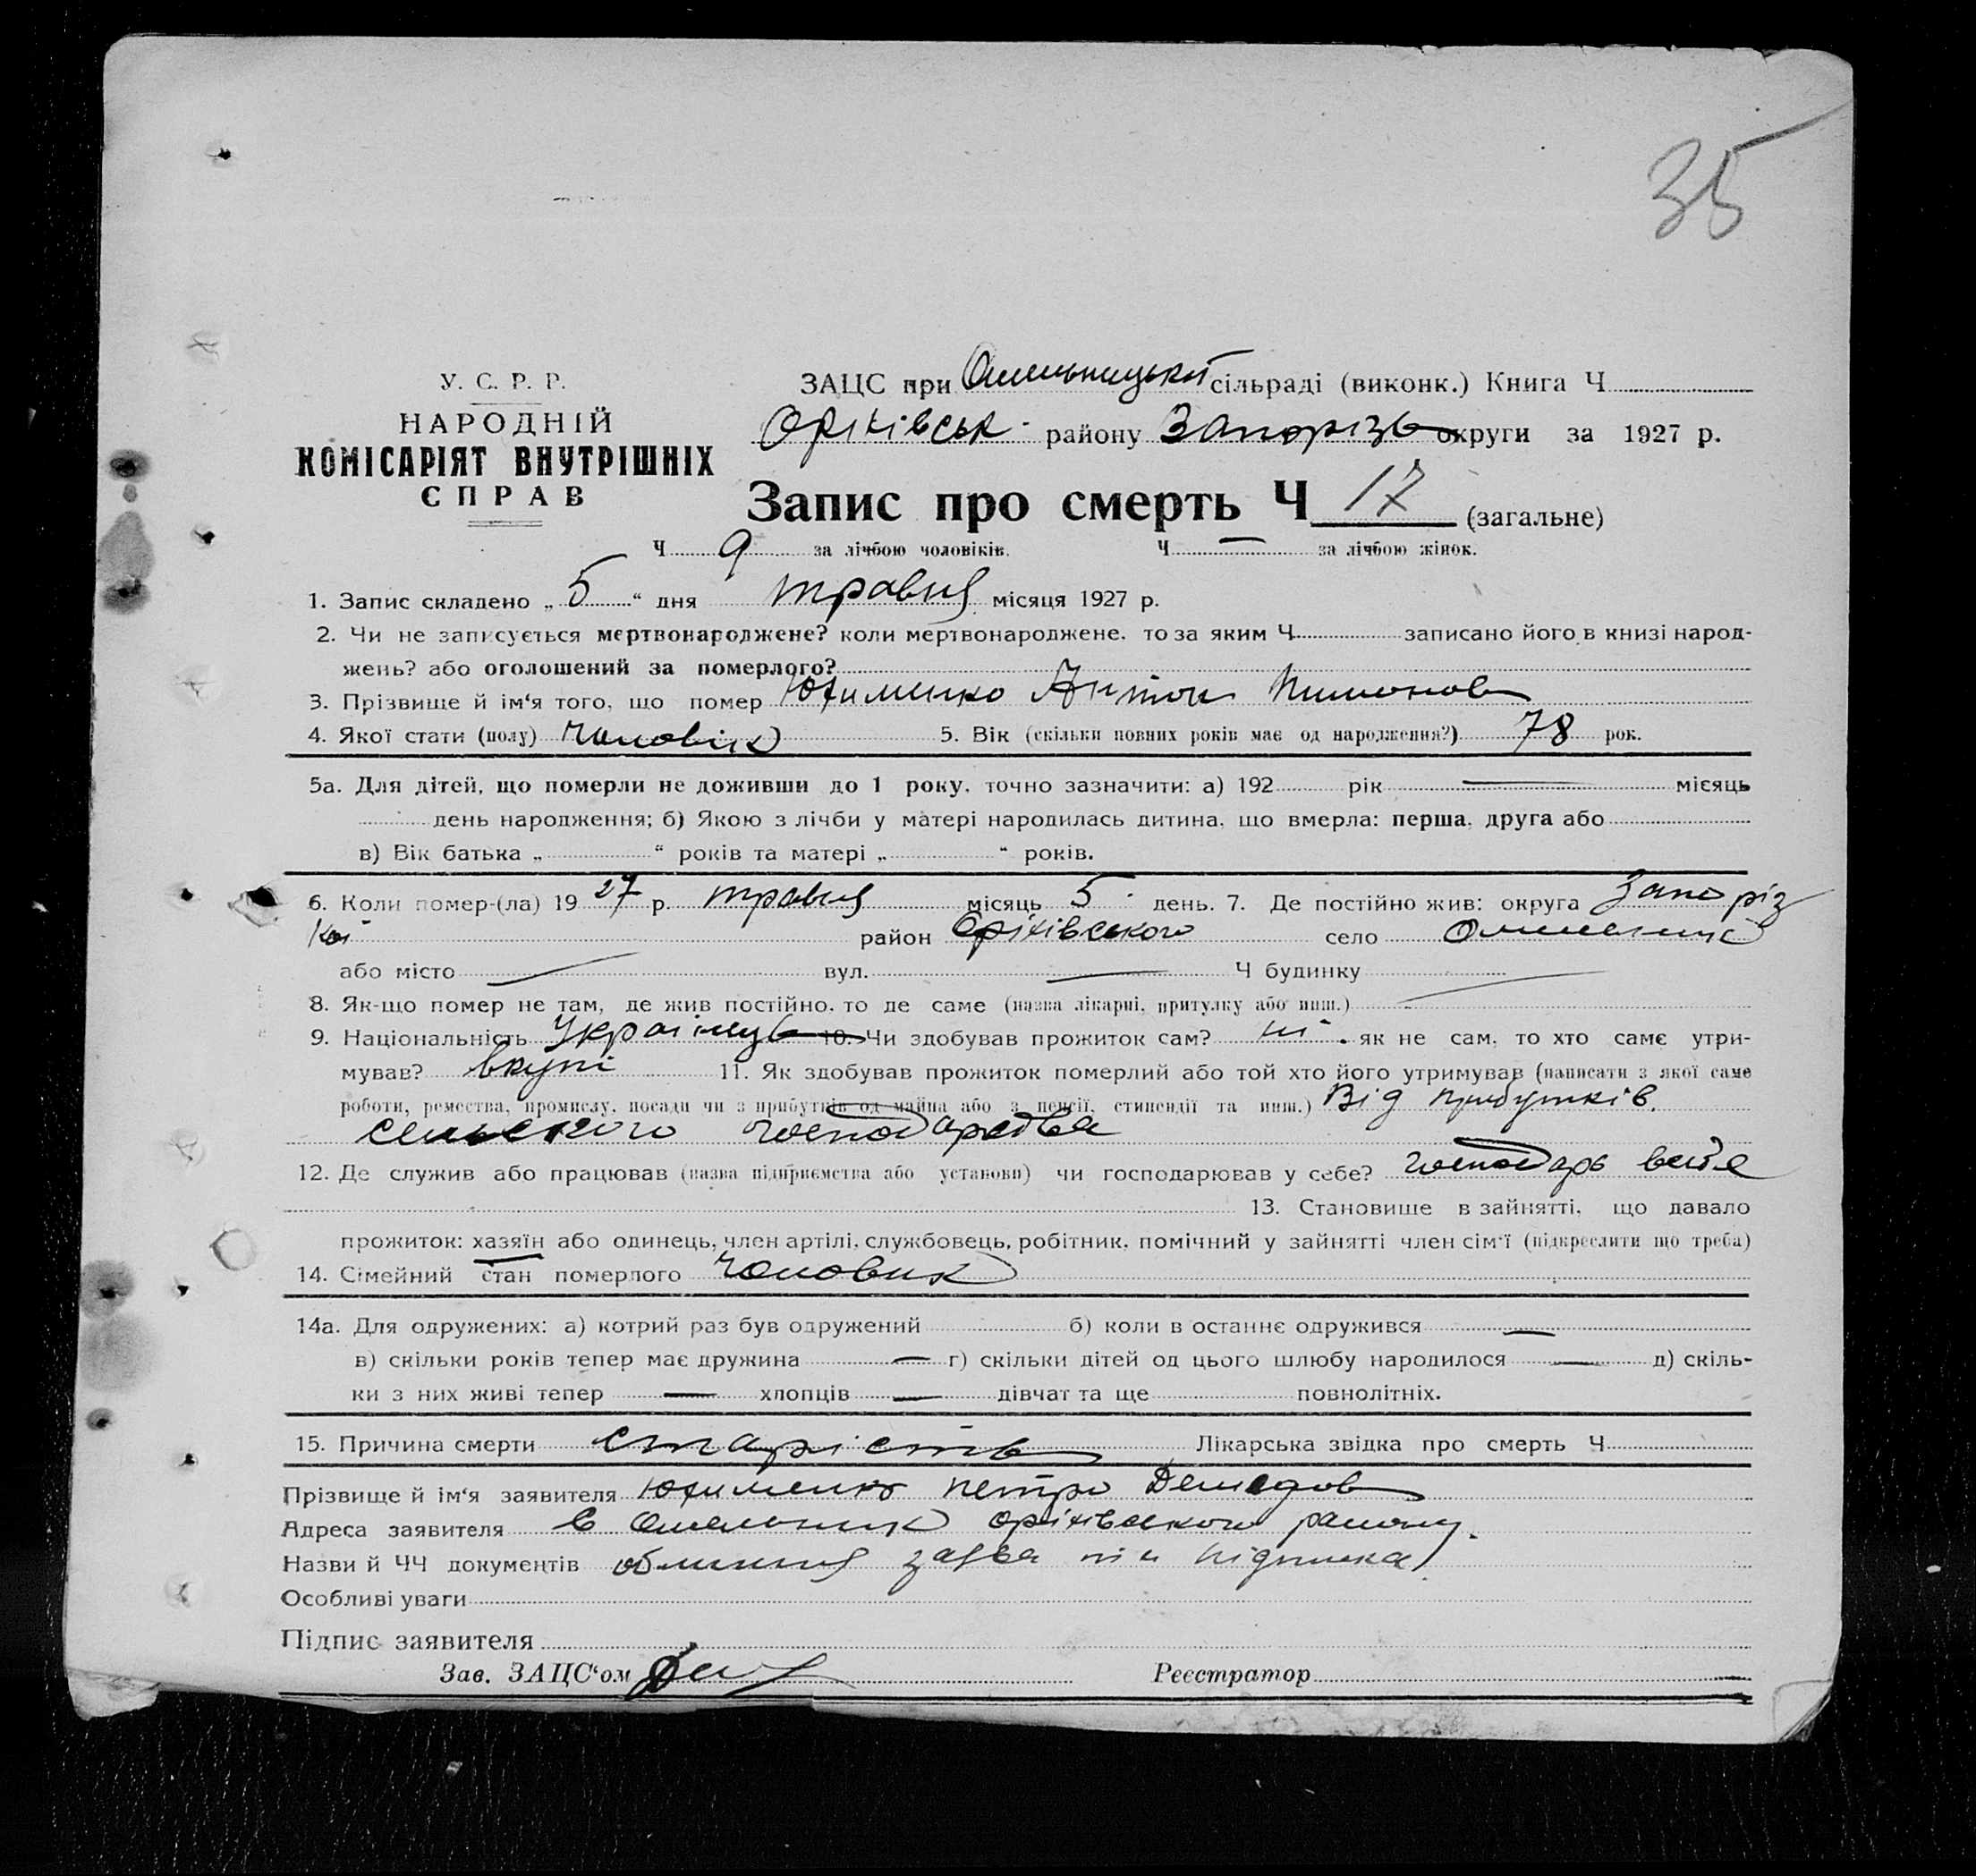 35
У. С. Р. Р.
НАРОДНІЙ
КОМІСАРІЯТ ВНУТРІШНІХ
СПРАВ
ЗАЦС при Омельницької сільраді (виконк.) Книга Ч
Оріхівськ. району Запорізь округи за 1927 р.
Запис про смерть Ч 17 (загальне)
Ч 9 за лічбою чоловіків. Ч — за лічбою жінок.
1. Запис складено „ 5 “ дня травня місяця 1927 р.
2. Чи не записується мертвонароджене? коли мертвонароджене. то за яким Ч записано його в книзі народ-
жень? або оголошений за померлого?
3. Прізвище й ім‘я того, що помер Юхименко Антон
4. Якої стати (полу) Чоловік 5. Вік (скільки повних років має од народження?) 78 рок.
5а. Для дітей, що померли не доживши до 1 року. точно зазначити: а) 192 рік — місяць
день народження; б) Якою з лічби у матері народилась дитина, що вмерла: перша, друга або
в) Вік батька „ “ років та матері „ “ років.
6. Коли помер-(ла) 19 27 р. травня місяць 5 день. 7. Де постійно жив: округа Запоріз
кої район Оріхівського село Омельник
або місто — вул. — Ч будинку —
8. Як-що помер не там, де жив постійно. то де саме (назва лікарні, притулку або инш.) —
9. Національність Українець 10. Чи здобував прожиток сам? ні. як не сам, то хто саме утри-
мував? вкупі 11. Як здобував прожиток померлий або той хто його утримував (написати з якої саме
роботи, ремества, промислу, посади чи з прибутків од майна або з пенсії, стипендії та инш.) Від прибутків.
сельского господарства
12. Де служив або працював (назва підприємства або установи) чи господарював у себе? господарь
13. Становище в зайнятті, що давало
прожиток: хазяїн або одинець, член артілі, службовець, робітник, помічний у зайнятті член сім‘ї (підкреслити що треба)
14. Сімейний стан померлого Чоловик
14а. Для одружених: а) котрий раз був одружений б) коли в останнє одружився —
в) скільки років тепер має дружина — г) скільки дітей од цього шлюбу народилося — д) скіль-
ки з них живі тепер — хлопців — дівчат та ще повнолітніх.
15. Причина смерти старість Лікарська звідка про смерть Ч
Прізвище й ім‘я заявителя Юхименко Петро
Адреса заявителя с Омельник Оріхівського району.
Назви й ЧЧ документів заява підписка
Особливі уваги
Підпис заявителя
Зав. ЗАЦС‘ом Реєстратор